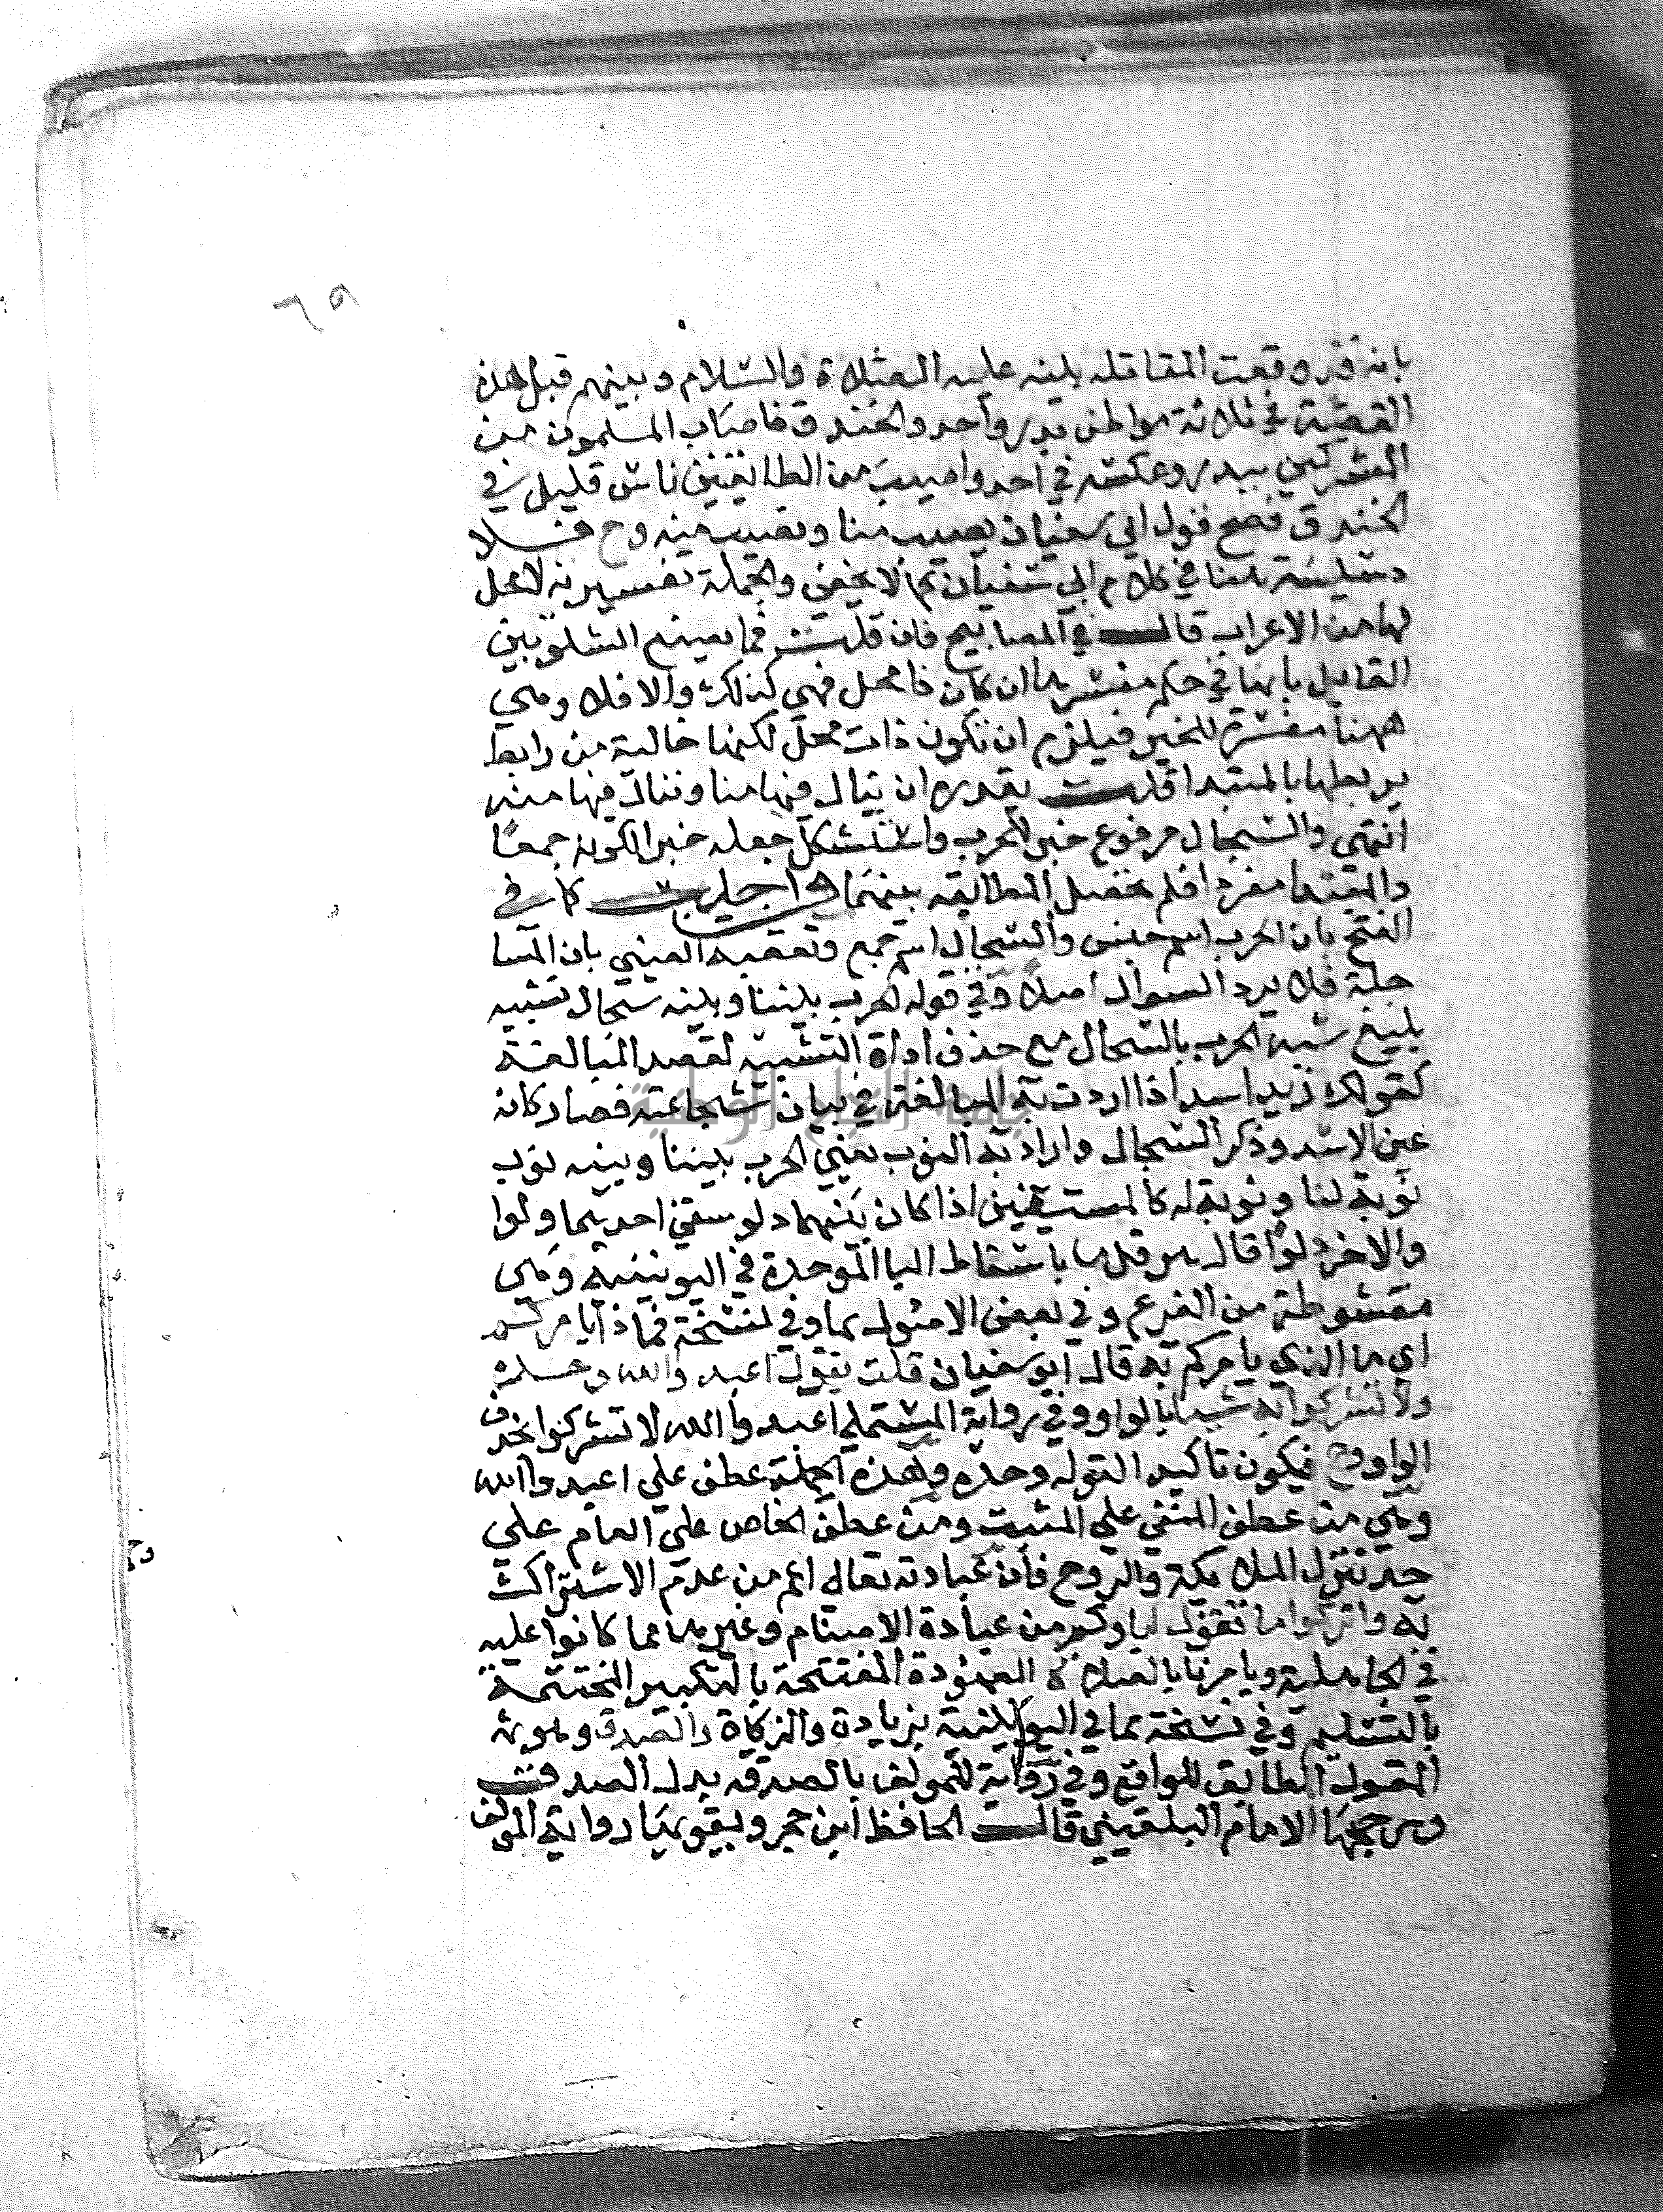 ٦٥
بانه قد وقعت المقاتله بينه عليه الصلاة والسلام وبينهم قبل هذه
القصة في ثلاثة مواطن بدر واحد والخندق فاصاب المسلمون من
المشركين ببدر وعكسه في احد واصيب من الطايفتين ناس قليل في
الخندق فصح قول ابي سفيان يصيب منا ونصيب منه وح فلا
دسيسة هنا في كلام ابي سفيان كما لا يخفى والجملة تفسيرية لا محل
لها من الاعراب قال في المصابيح فان قلت فما يصنع الشلوبين
القايل بانها في حكم مفسرها ان كان ذا محل فهي كذلك والا فلا وهي
ههنا مفسرة للخبر فيلزم ان تكون ذات محل لكنها خالية من رابط
يربطها بالمبتدا قلت تقديره ان ينال فيها منا وننال فيها منه
انتهى والسجال مرفوع خبر للحرب واستشكل جعله خبرا لكونه جمعا
والمبتدا مفرد فلم تحصل المطابقه بينهما واجيب كما في
الفتح بان الحرب اسم جنس والسجال اسم جمع وتعقبه العيني بان السجا
جملة فلا يرد السوال اصلا وفي قوله الحرب بيننا وبينه سجال تشبيه
بليغ شبه الحرب بالسجال مع حذف اداة التشبيه لقصد المبالغة
كقولك زيد اسد اذا اردت به المبالغة في بيان شجاعته فصار كانه
عين الاسد وذكر السجال واراد به النوب يعني الحرب بيننا وبينه نوب
نوبة لنا ونوبة له كالمستقين اذا كان بينهما دلو يستقي احدهما دلوا
والاخر دلوا قال هرقل ما باسقاط البا الموحدة في اليونينية وهي
مقشوطة من الفرع وفي بعض الاصول بما وفي نسخة فماذا يامركم
اي ما الذي يامركم به قال ابو سفيان قلت يقول اعبدوا الله وحده
ولا تشركوا به شيا بالواو وفي رواية المستملي اعبدوا الله لا تشركوا بحذف
الواو وح فيكون تاكيدا لقوله وحده وهذه الجملة عطف على اعبدوا الله
وهي من عطف المنفي على المثبت ومن عطف الخاص على العام على
حد تنزل الملايكة والروح فان عبادته تعالى اعم من عدم الاشتراك
به واتركوا ما تقول اباوكم من عبادة الاصنام وغيرها مما كانوا عليه
في الجاهلية ويامرنا بالصلاة المعهودة المفتتحة بالتكبير المختتمة
بالتسليم وفي نسخة مما في اليونينية بزيادة والزكاة والصدق وهو
القول المطابق للواقع وفي رواية للمولف بالصدقه بدل الصدق
ورجحها الامام البلقيني قال الحافظ ابن حجر ويقويها رواية المولف